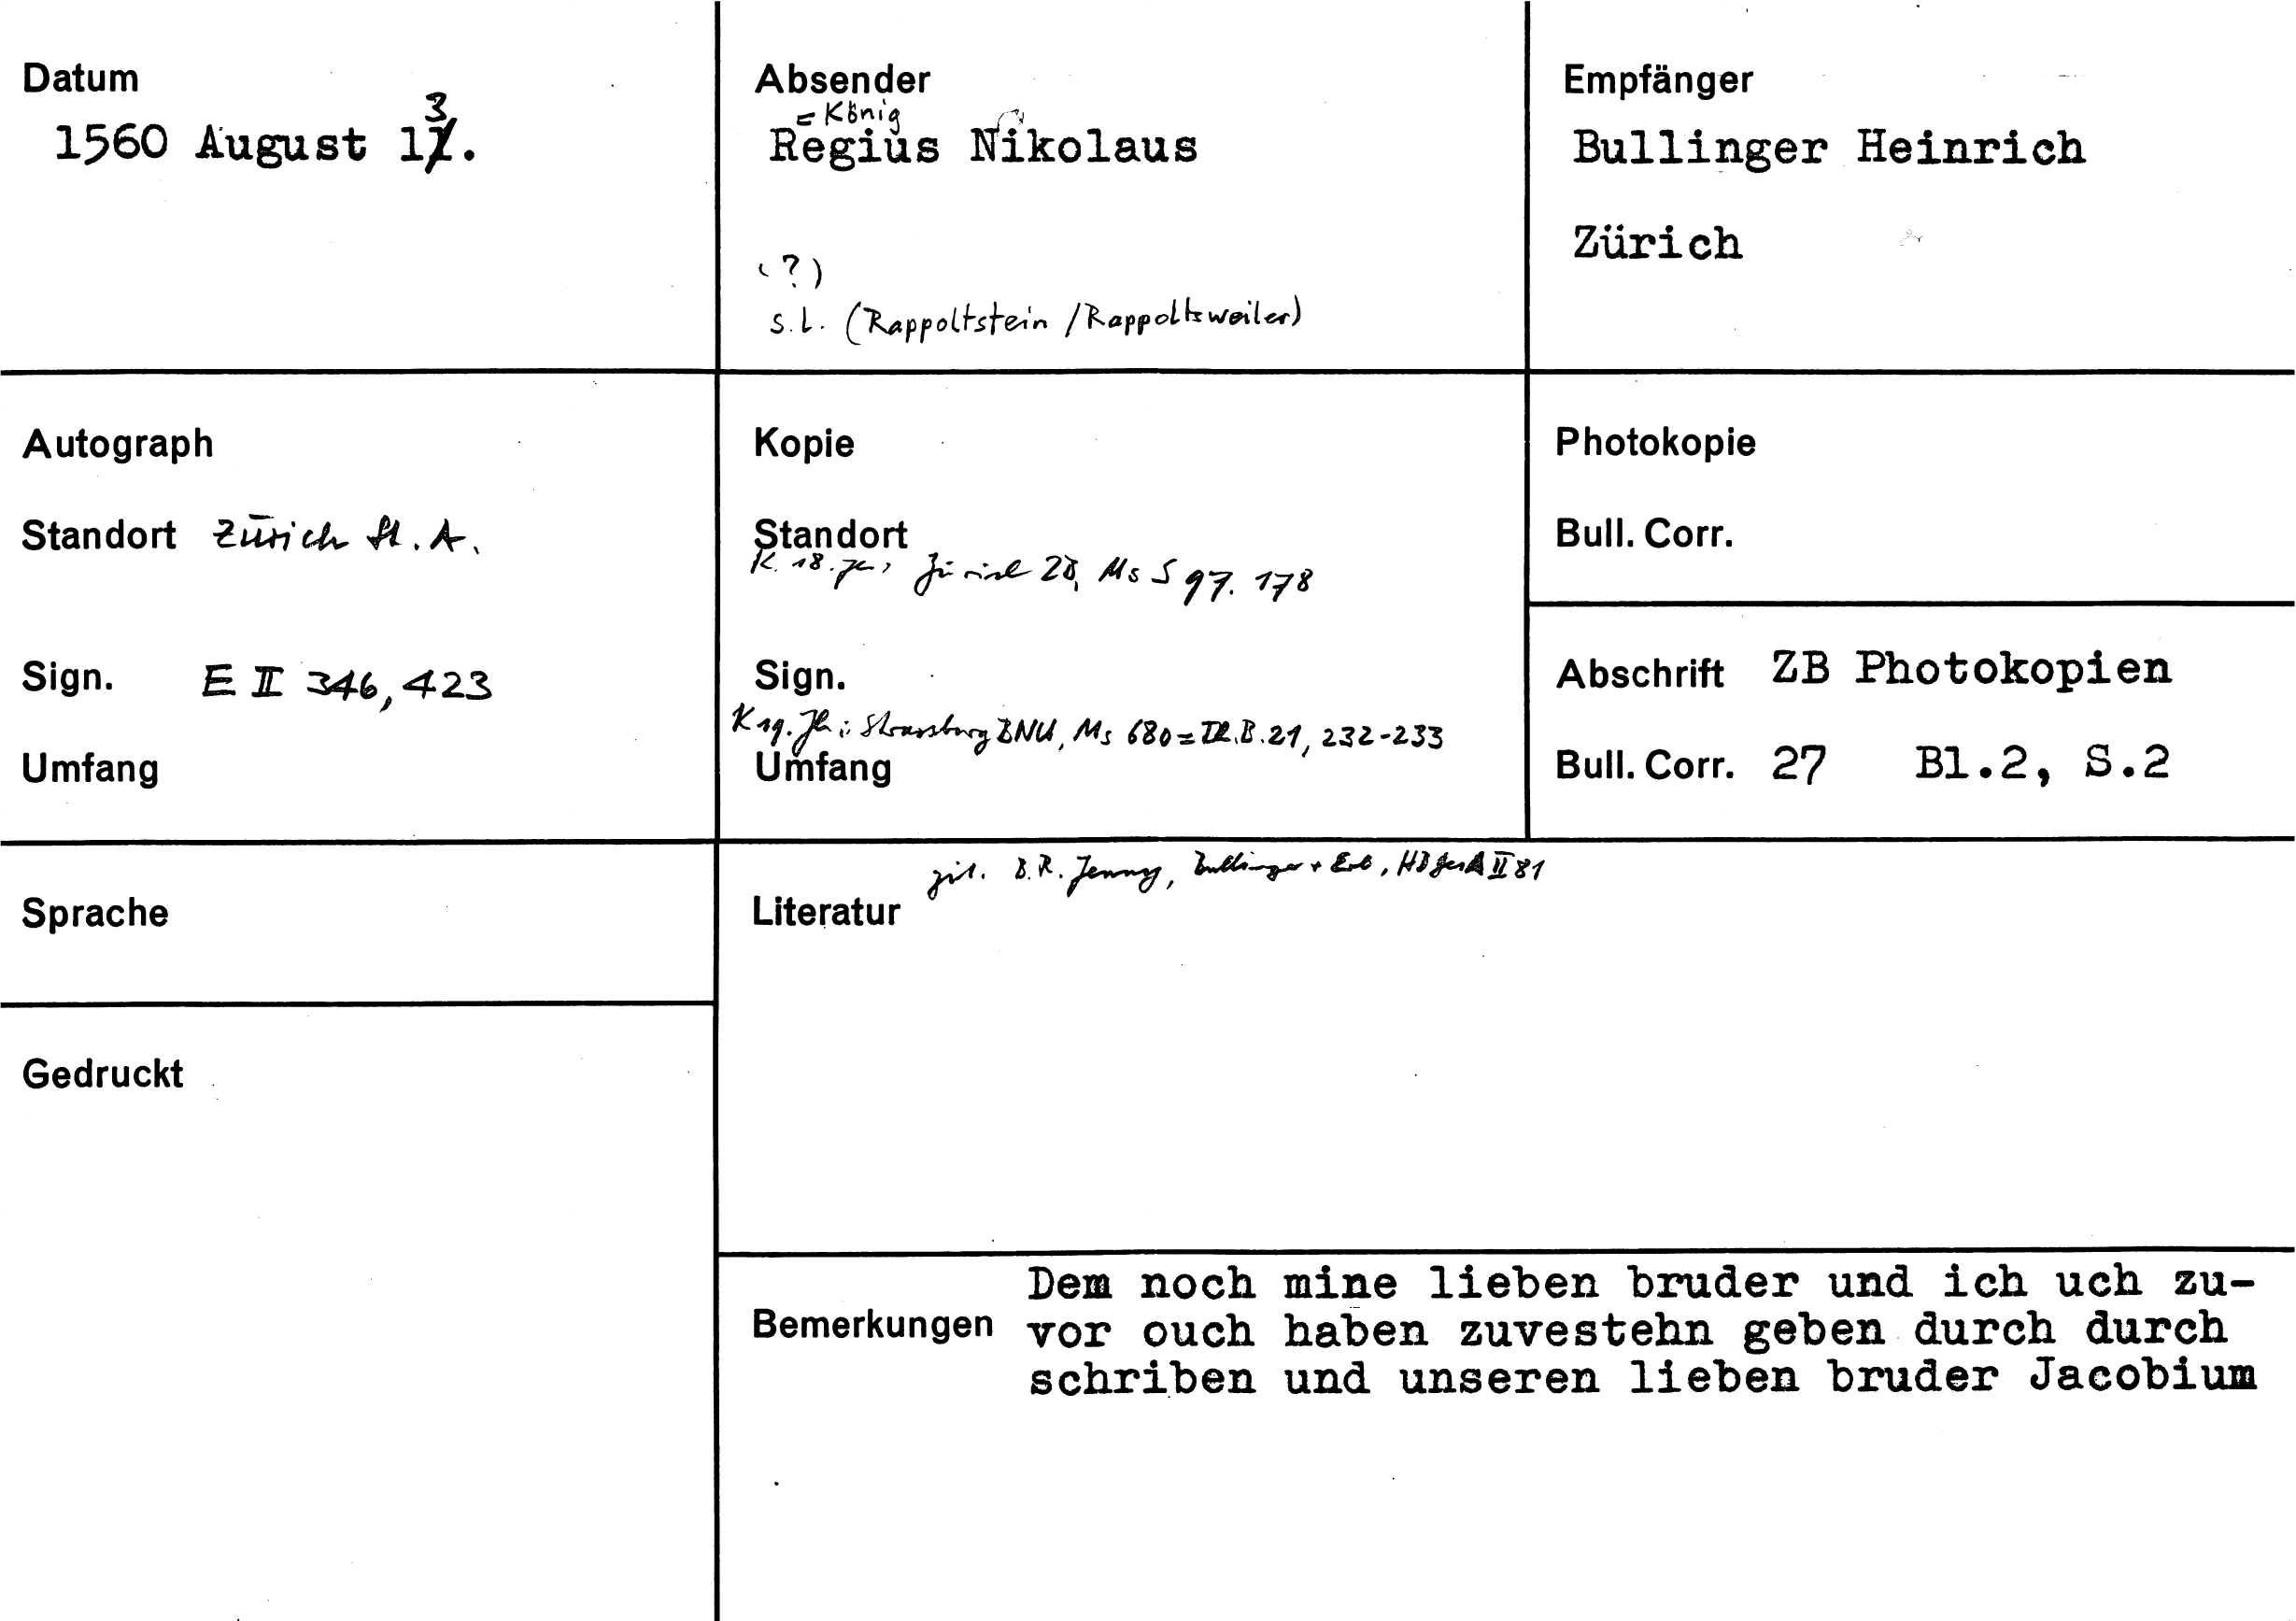 Datum
1560 August 13.
Absender
= König
Regius Nikolaus
(?)
s.l. (Rappoltstein / Rappoltsweiler)
Empfänger
Bullinger Heinrich
Zürich
Autograph
Standort Zürich St. A.
Sign. E II 346, 423
Umfang
Kopie
Standort
K. 18. Jh., Zürich ZB, Ms S 97. 178
Sign.
K 19. Jh.: Strassburg BNU, Ms 680 = B.21, 232-233
Umfang
Photokopie
Bull. Corr.
Abschrift ZB Photokopien
Bull. Corr. 27 Bl.2, S.2
Sprache
Gedruckt
zit. B.R. Jenny, Bullinger + Erb, HBGesA II 81
Literatur
Bemerkungen
Dem noch mine lieben bruder und ich uch zu-
vor ouch haben zuvestehn geben durch durch
schriben und unseren lieben bruder Jacobium